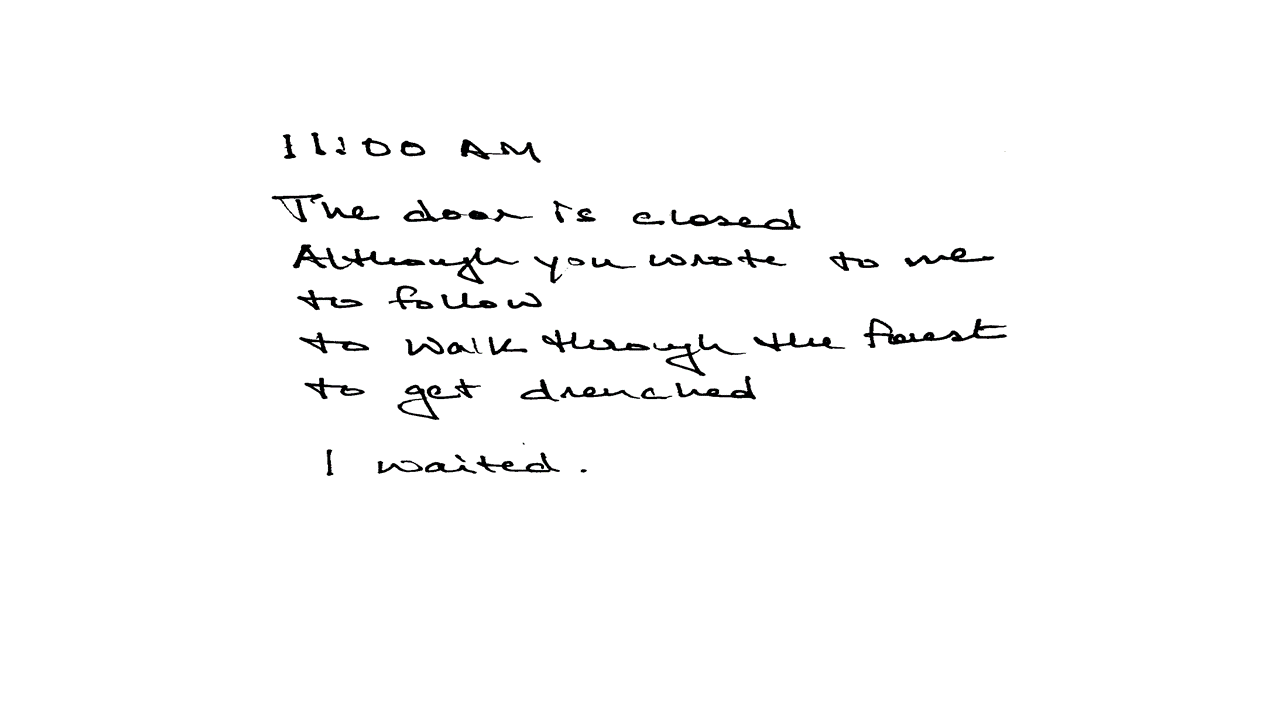 11:00 AM
The door is closed
Although you wrote to me
to follow
to walk through the forest
to get drenched
I waited.